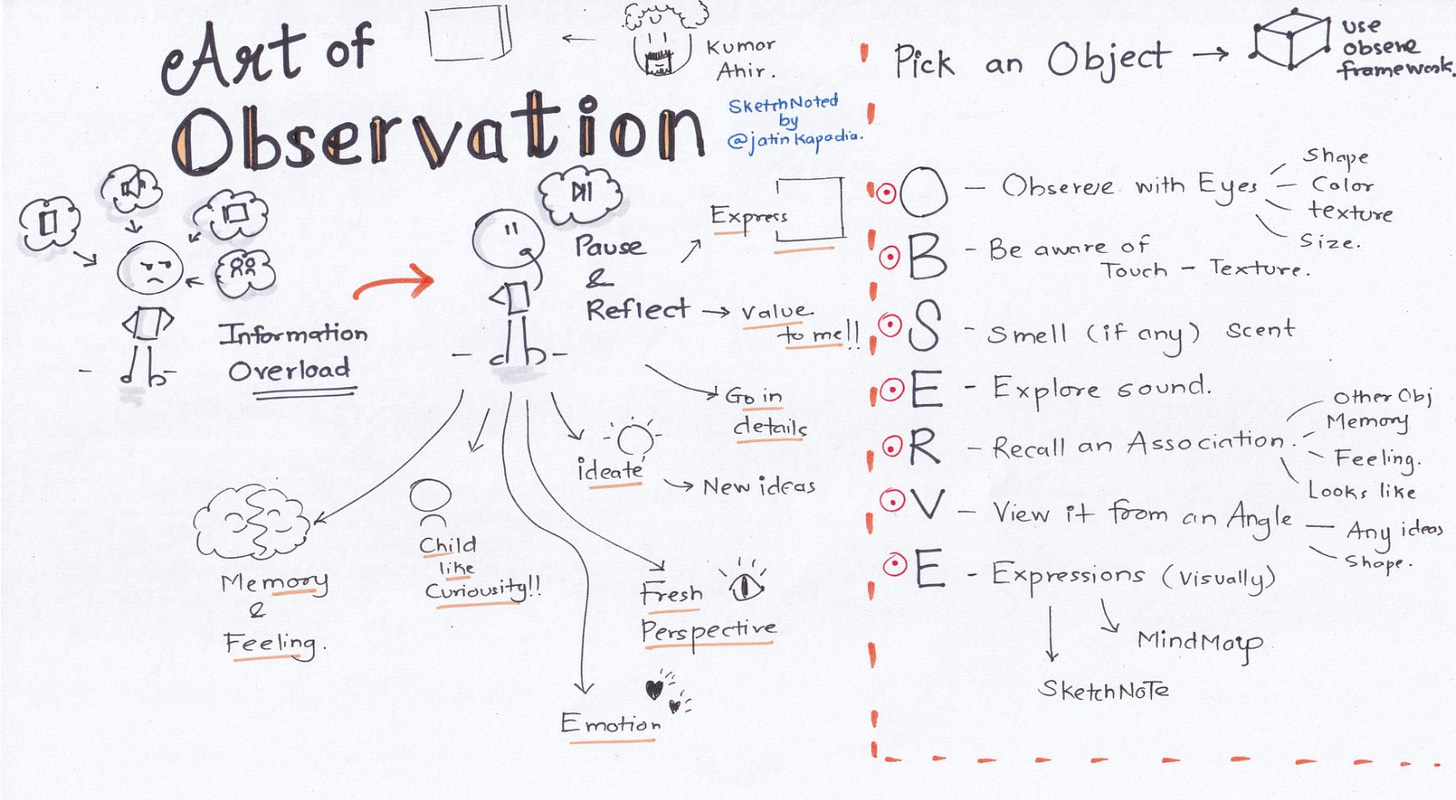 Art of
Observation
Kumar
Ahir.
SketchNoted
by
@jatinkapadia.
Information
Overload
Pause
&
Reflect
Express
value
to me!!
Go in
details
ideate
New ideas
Memory
&
Feeling.
Child
like
Curiousity!!
Fresh
Perspective
Emotion
Pick an Object →
use
obsere
framework.
O – Observe with Eyes
Shape
Color
texture
Size.
B – Be aware of
Touch – Texture.
S - Smell (if any) scent
E - Explore sound.
R – Recall an Association.
Other Obj
Memory
Feeling.
Looks like
V – View it from an Angle
Any ideas
Shape.
E - Expressions (visually)
MindMap
SketchNoTe